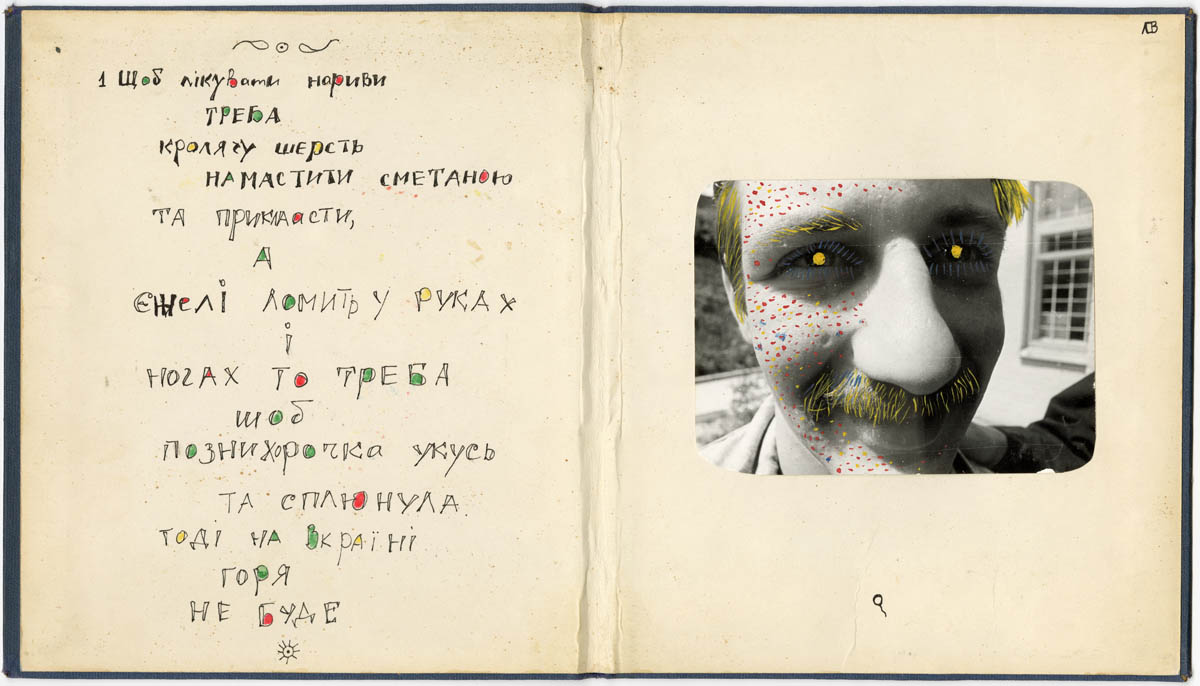 1 Щоб лікувати нариви
ТРЕБА
кролячу шерсть
НАМАСТИТИ СМЕТАНОЮ
ТА ПРИКЛАСТИ,
А
Єжелі ломить у РУКАХ
і
НОГАХ ТО ТРЕБА
щоб
ПОЗНИХОРОЧКА УКУСЬ
ТА СПЛЮНУЛА
ТОДІ НА Вкраїні
ГОРЯ
НЕ БУДЕ